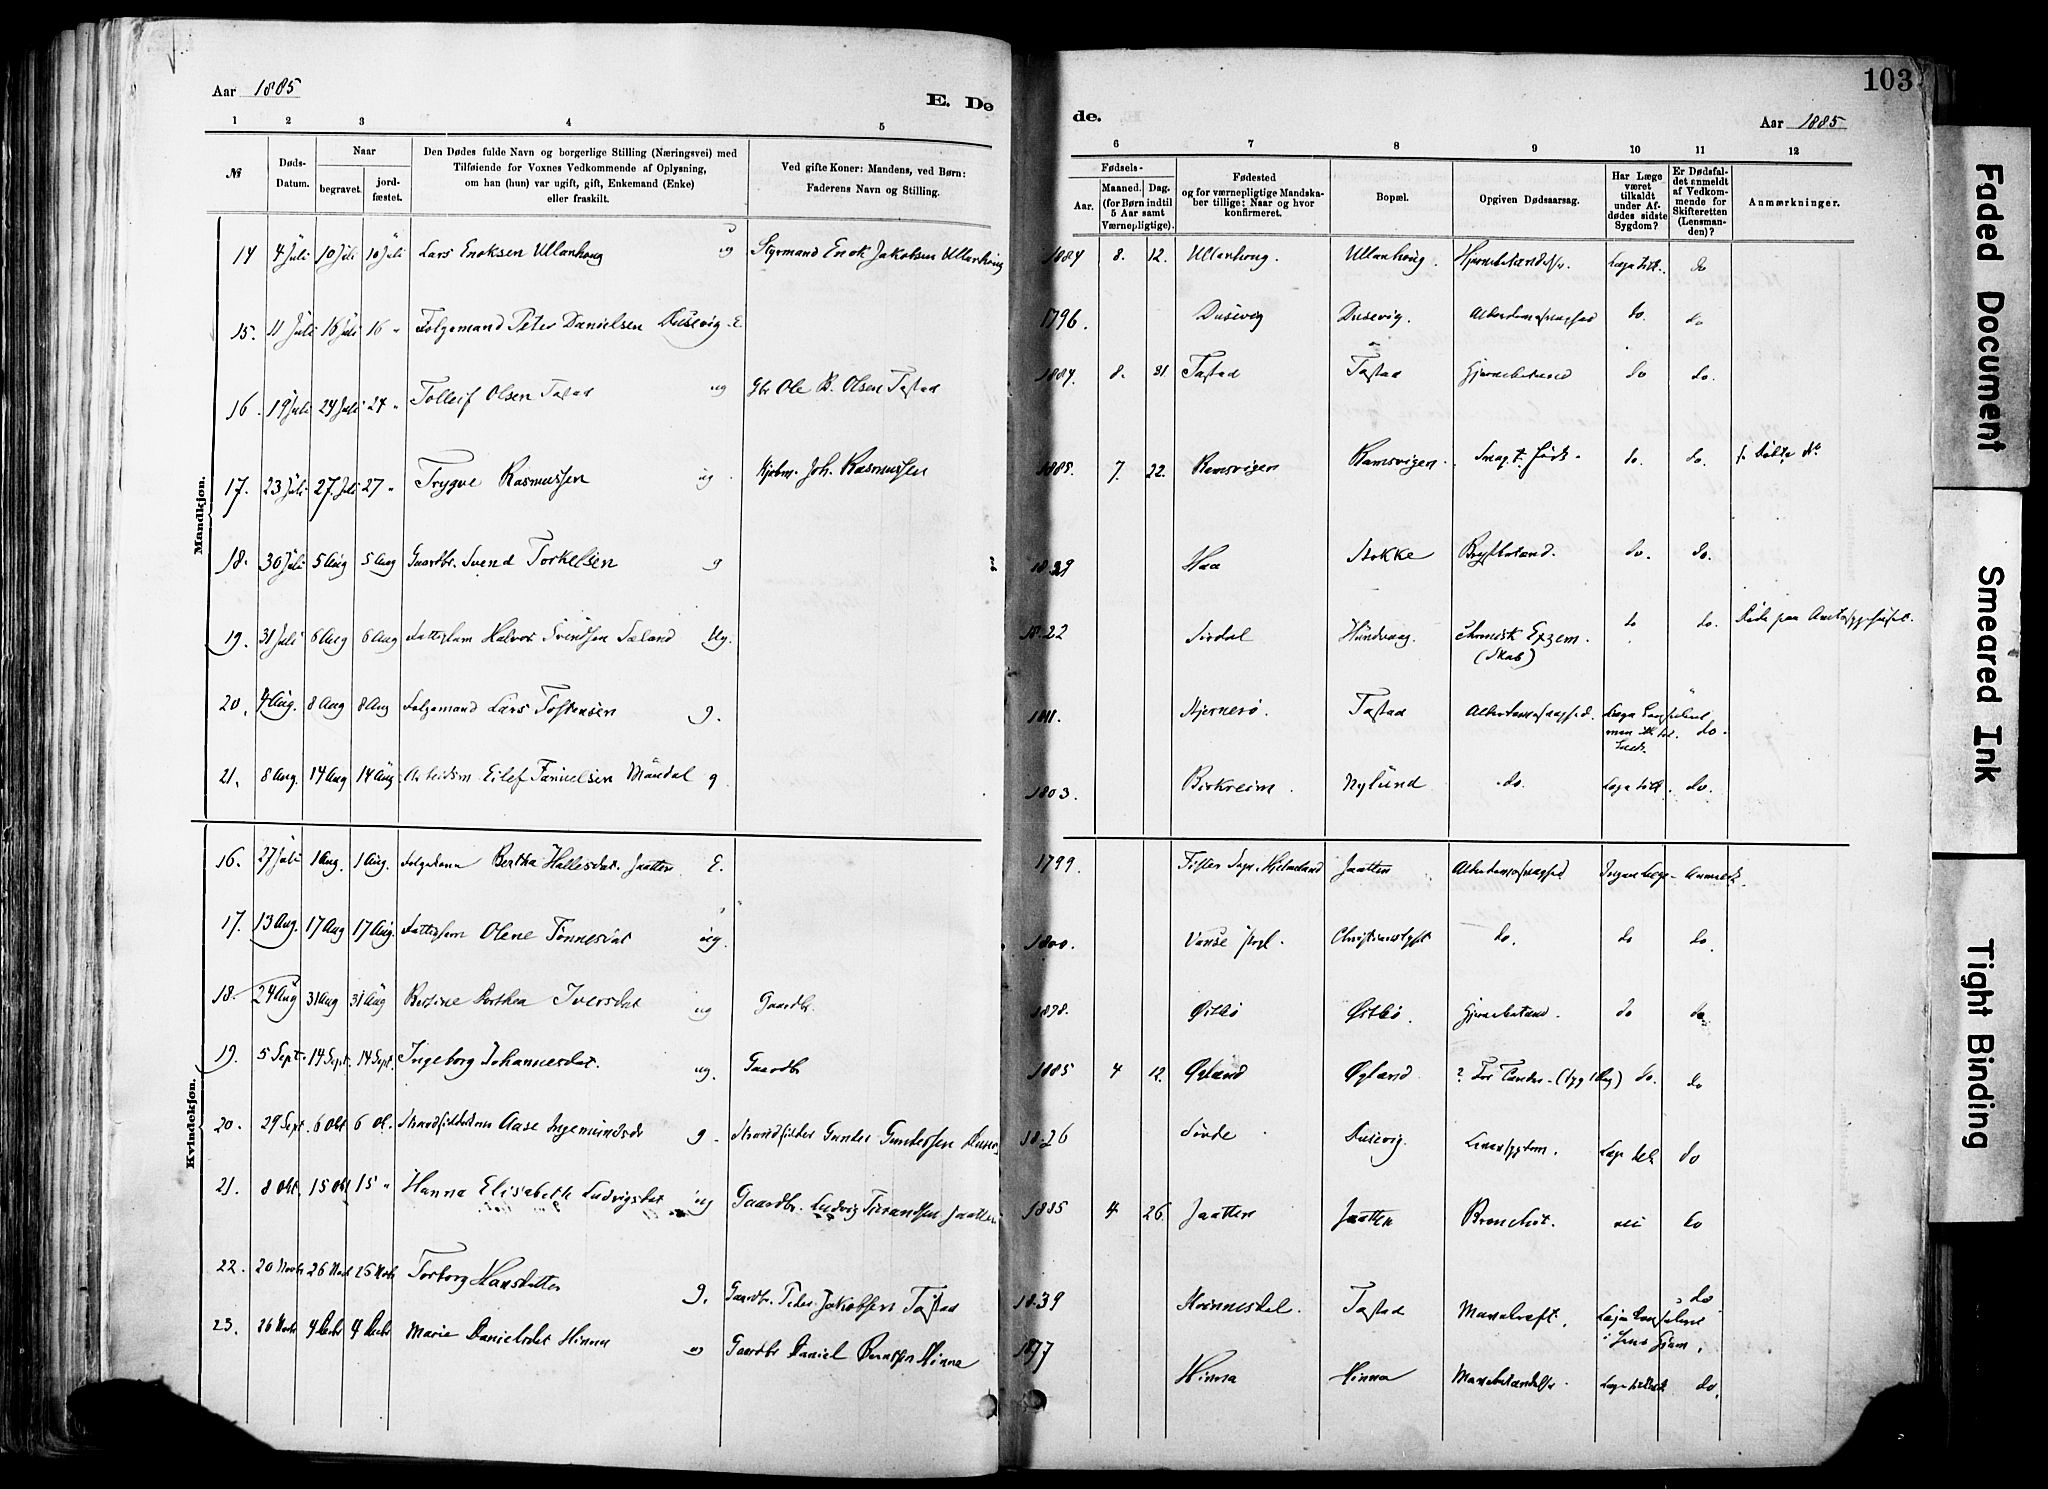 Aar 1885
E. De
1 2 3 4 5
№
Døds-
Datum.
Naar
begravet.
jord-
fæstet.
Den Dødes fulde Navn og borgerlige Stilling (Næringsvei) med
Tilføiende for Voxnes Vedkommende af Oplysning,
om han (hun) var ugift, gift, Enkemand (Enke)
eller fraskilt.
Ved gifte Koner: Mandens, ved Børn:
Faderens Navn og Stilling.
Mandkjøn.
14 4 Juli 10 Juli 10 Juli Lars Enoksen Ullanhoug ug Styrmand Enok Jakobsen Ullanhoug
15. 11 Juli 16 Juli 16 " Folgemand Peter Danielsen Dusevig E.
16. 19 Juli 24 Juli 24 " Tolleif Olsen Tastad ug Gbr Ole B. Olsen Tastad
17. 23 Juli 27. Juli 27 " Trygve Rasmussen ug. Kjøbm. Joh. Rasmussen
18. 30 Juli 5 Aug 5 Aug Gaardbr. Svend Torkelsen g
19. 31 Juli 6 Aug 6 Aug Fattiglem Halvor Svendsen Sæland Ug.
20. 4 Aug. 8 Aug 8 Aug Folgemand Lars Tostensen g.
21. 8 Aug. 14 Aug 14 Aug Arbeidsm Eilef Tønnesen Maudal g
Kvindekjøn.
16. 27 Juli 1 Aug. 1 Aug. Folgekone Bertha Hallesdat. Jaatten E.
17. 13 Aug. 17 Aug 17 Aug. Fattiglem Olene Tønnesdat ug.
18. 24 Aug 31 Aug 31 Aug Bertine Dorthea Iversdat ug Gaardbr.
19. 5 Sept. 14 Sept. 14 Sept. Ingeborg Johannesdat. ug. Gaardbr
20. 29 Sept. 6 Okt 6 Ok. Strandsidderkone Aase Ingemundsdr g. Strandsidder Gunder Gundersen Dusevig
21. 8 Okt. 15 Okt 15 " Hanna Elisabeth Ludvigsdat ug Gaardbr. Ludvig Jaatten
22. 20 Novbr 26 Novbr 26 Novbr Torborg Hansdatter g. Gaardbr. Peder Jakobsen Tastad
23. 26 Novbr 4 Decbr 4 Decbr Marie Danielsdat Hinna ug Gaardbr Daniel Berntsen Hinna
103
de.
Aar 1885
6 7 8 9 10 11 12
Fødsels-
Aar.
Maaned. Dag.
(for Børn indtil
5 Aar samt
Værnepligtige).
Fødested
og for værnepligtige Mandska-
ber tillige: Naar og hvor
konfirmeret.
Bopæl.
Opgiven Dødsaarsag.
Har Læge
været
tilkaldt
under Af-
dødes sidste
Sygdom?
Er Dødsfal-
det anmeldt
af Vedkom-
mende for
Skifteretten
(Lensman-
den)?
Anmærkninger.
1884 8. 12. Ullanhoug. Ullanhoug. Hjernebetændelse. Læge tilk. do
1796. Dusevig Dusevig. Alderdomssvaghed do. do
1884. 8. 31 Tastad Tastad Hjernebetænd do do.
1885. 7. 22. Ramsvigen Ramsvigen. Svag f. Føds. do. do.
1829 Haa Stokke Brystbetænd. do. do.
1822 Sirdal Hundvaag. chronisk Exzem. (Skab) do do. Døde paa Amtssygehuset.
1811. Hjernerø. Tastad Alderdomssvaghed. do.
1803. Birkreim. Nylund do. Læge tilk. do.
1799 Fister Sogn, Hjelmeland Jaatten Alderdomssvaghed Ingen Læge Anmeldt.
1800. Vanse Prgl. Christianslyst do. do do.
1878. Østbø Østbø. Hjernebetænd. do do
1885 4 12. Øgland Øgland. ? For Tænder (syg 1 Dag) do. do
1826 Sovde. Dusevig. Leversygdom. Læge tilk do
1885 4 26. Jaatten Jaatten Bronchit. nei do
1839 Kvinnesdal. Tastad Mavekræft. do
1877 Hinna Hinna Mavebetændelse. Læge tilkaldt do.
Faded Document
Smeared Ink
Tight Binding